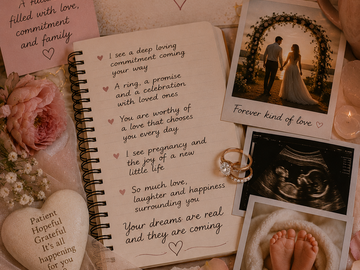 A future
filled with love,
commitment
and family
I see a deep loving
commitment coming
your way
A ring, a promise
and a celebration
with loved ones
You are worthy of
a love that chooses
you every day.
I see pregnancy and
the joy of a new
little life
So much love,
laughter and happiness
surrounding you
Your dreams are real
and they are coming
Forever kind of love
Patient
Hopeful
Grateful
It's all
happening
for you